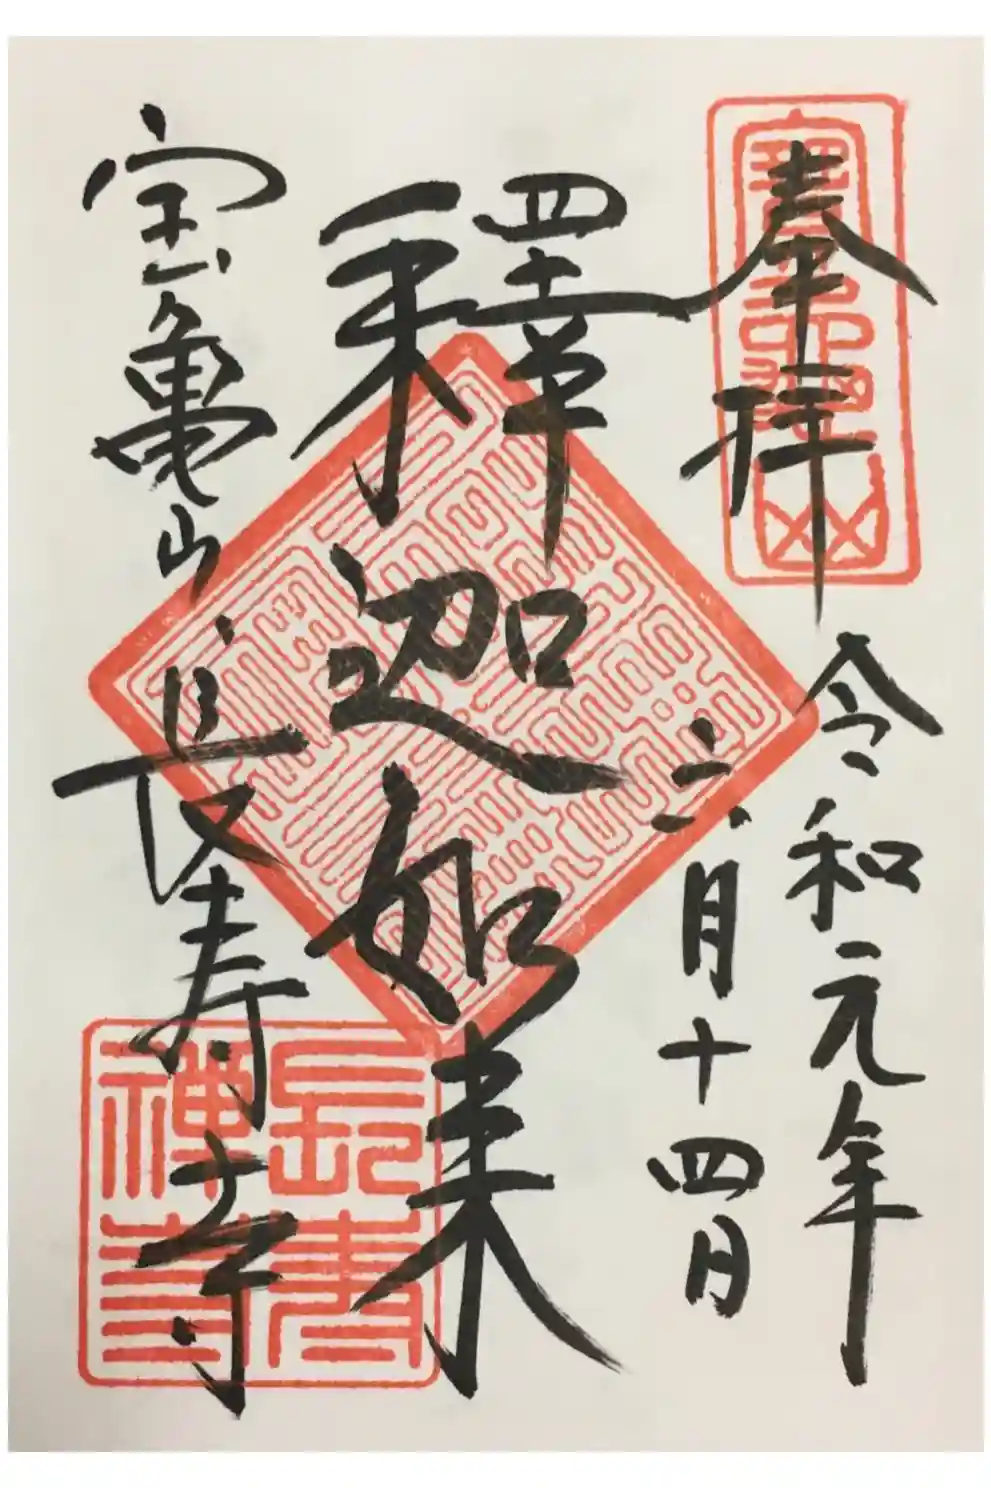 奉拝
令和元年
六月十四日
釋迦如来
宝亀山 長寿寺
長壽
禅寺